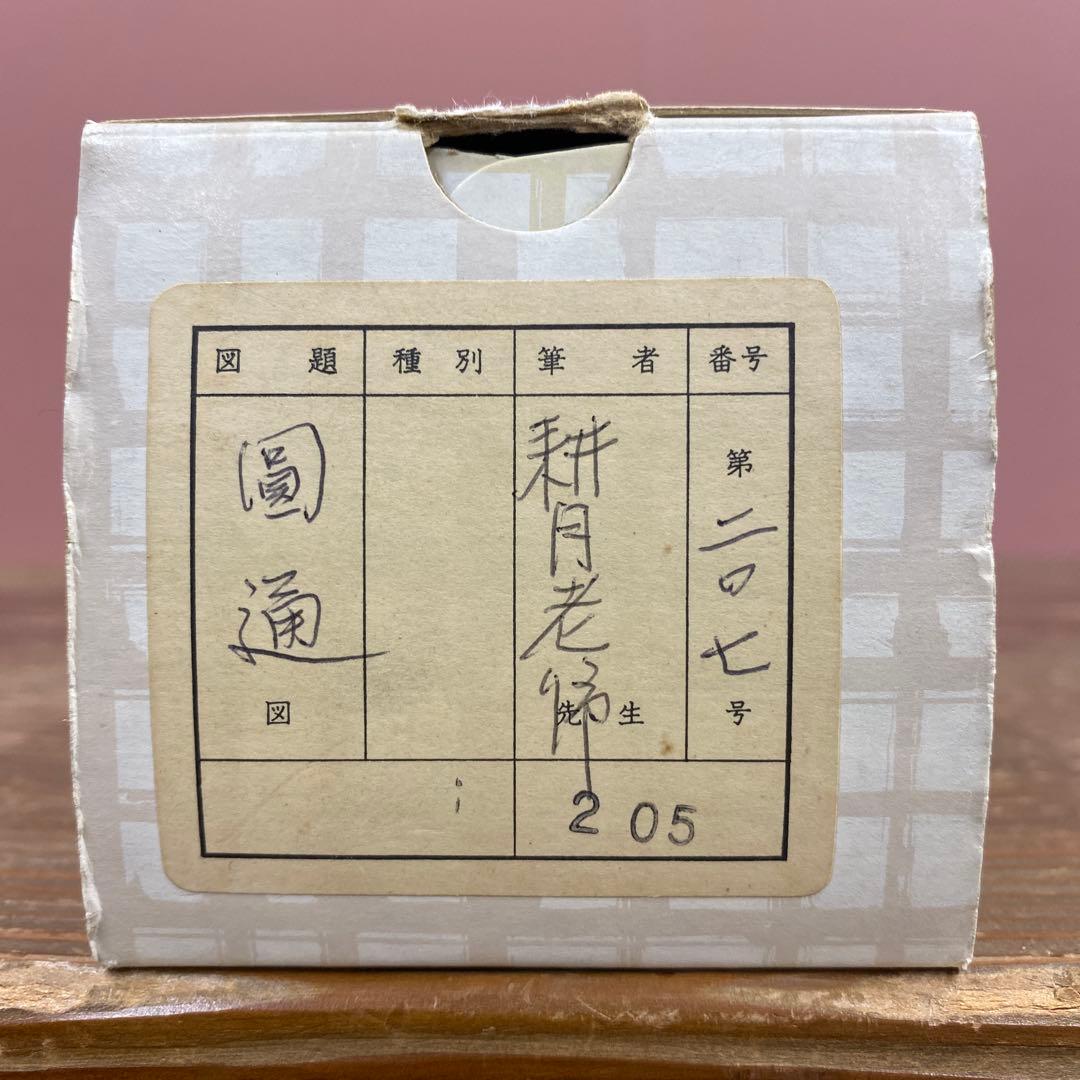 番号
第二〇七号
筆者
耕月老師
先生
種別
図題
圓通
図
205